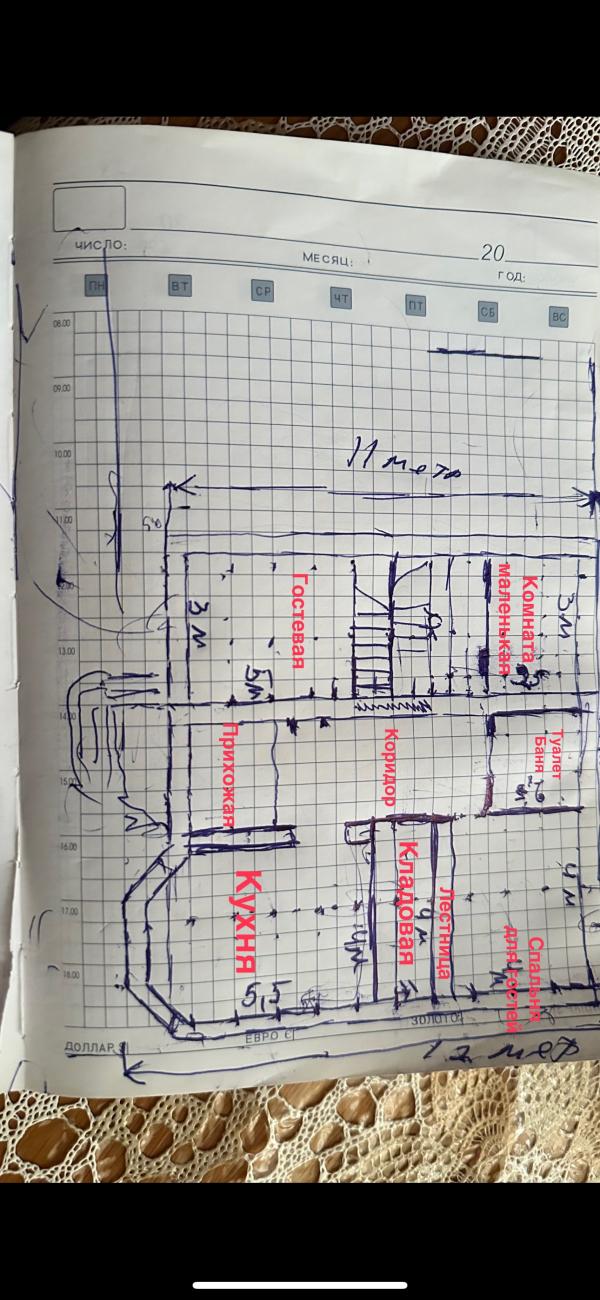 ЧИСЛО:
МЕСЯЦ:
20
ГОД:
ПН
ВТ
СР
ЧТ
ПТ
СБ
ВС
08.00
09.00
10.00
11 мета
11.00
12.00
13.00
14.00
15.00
16.00
17.00
18.00
Гостевая
3 м
5 м
Комната
маленькая
3 м
Прихожая
Коридор
Туалет
Баня
Кухня
5,5
4 м
Кладовая
Лестница
4 м
Спальня
для гостей
4 м
ДОЛЛАР $
ЕВРО €
ЗОЛОТО
12 мет